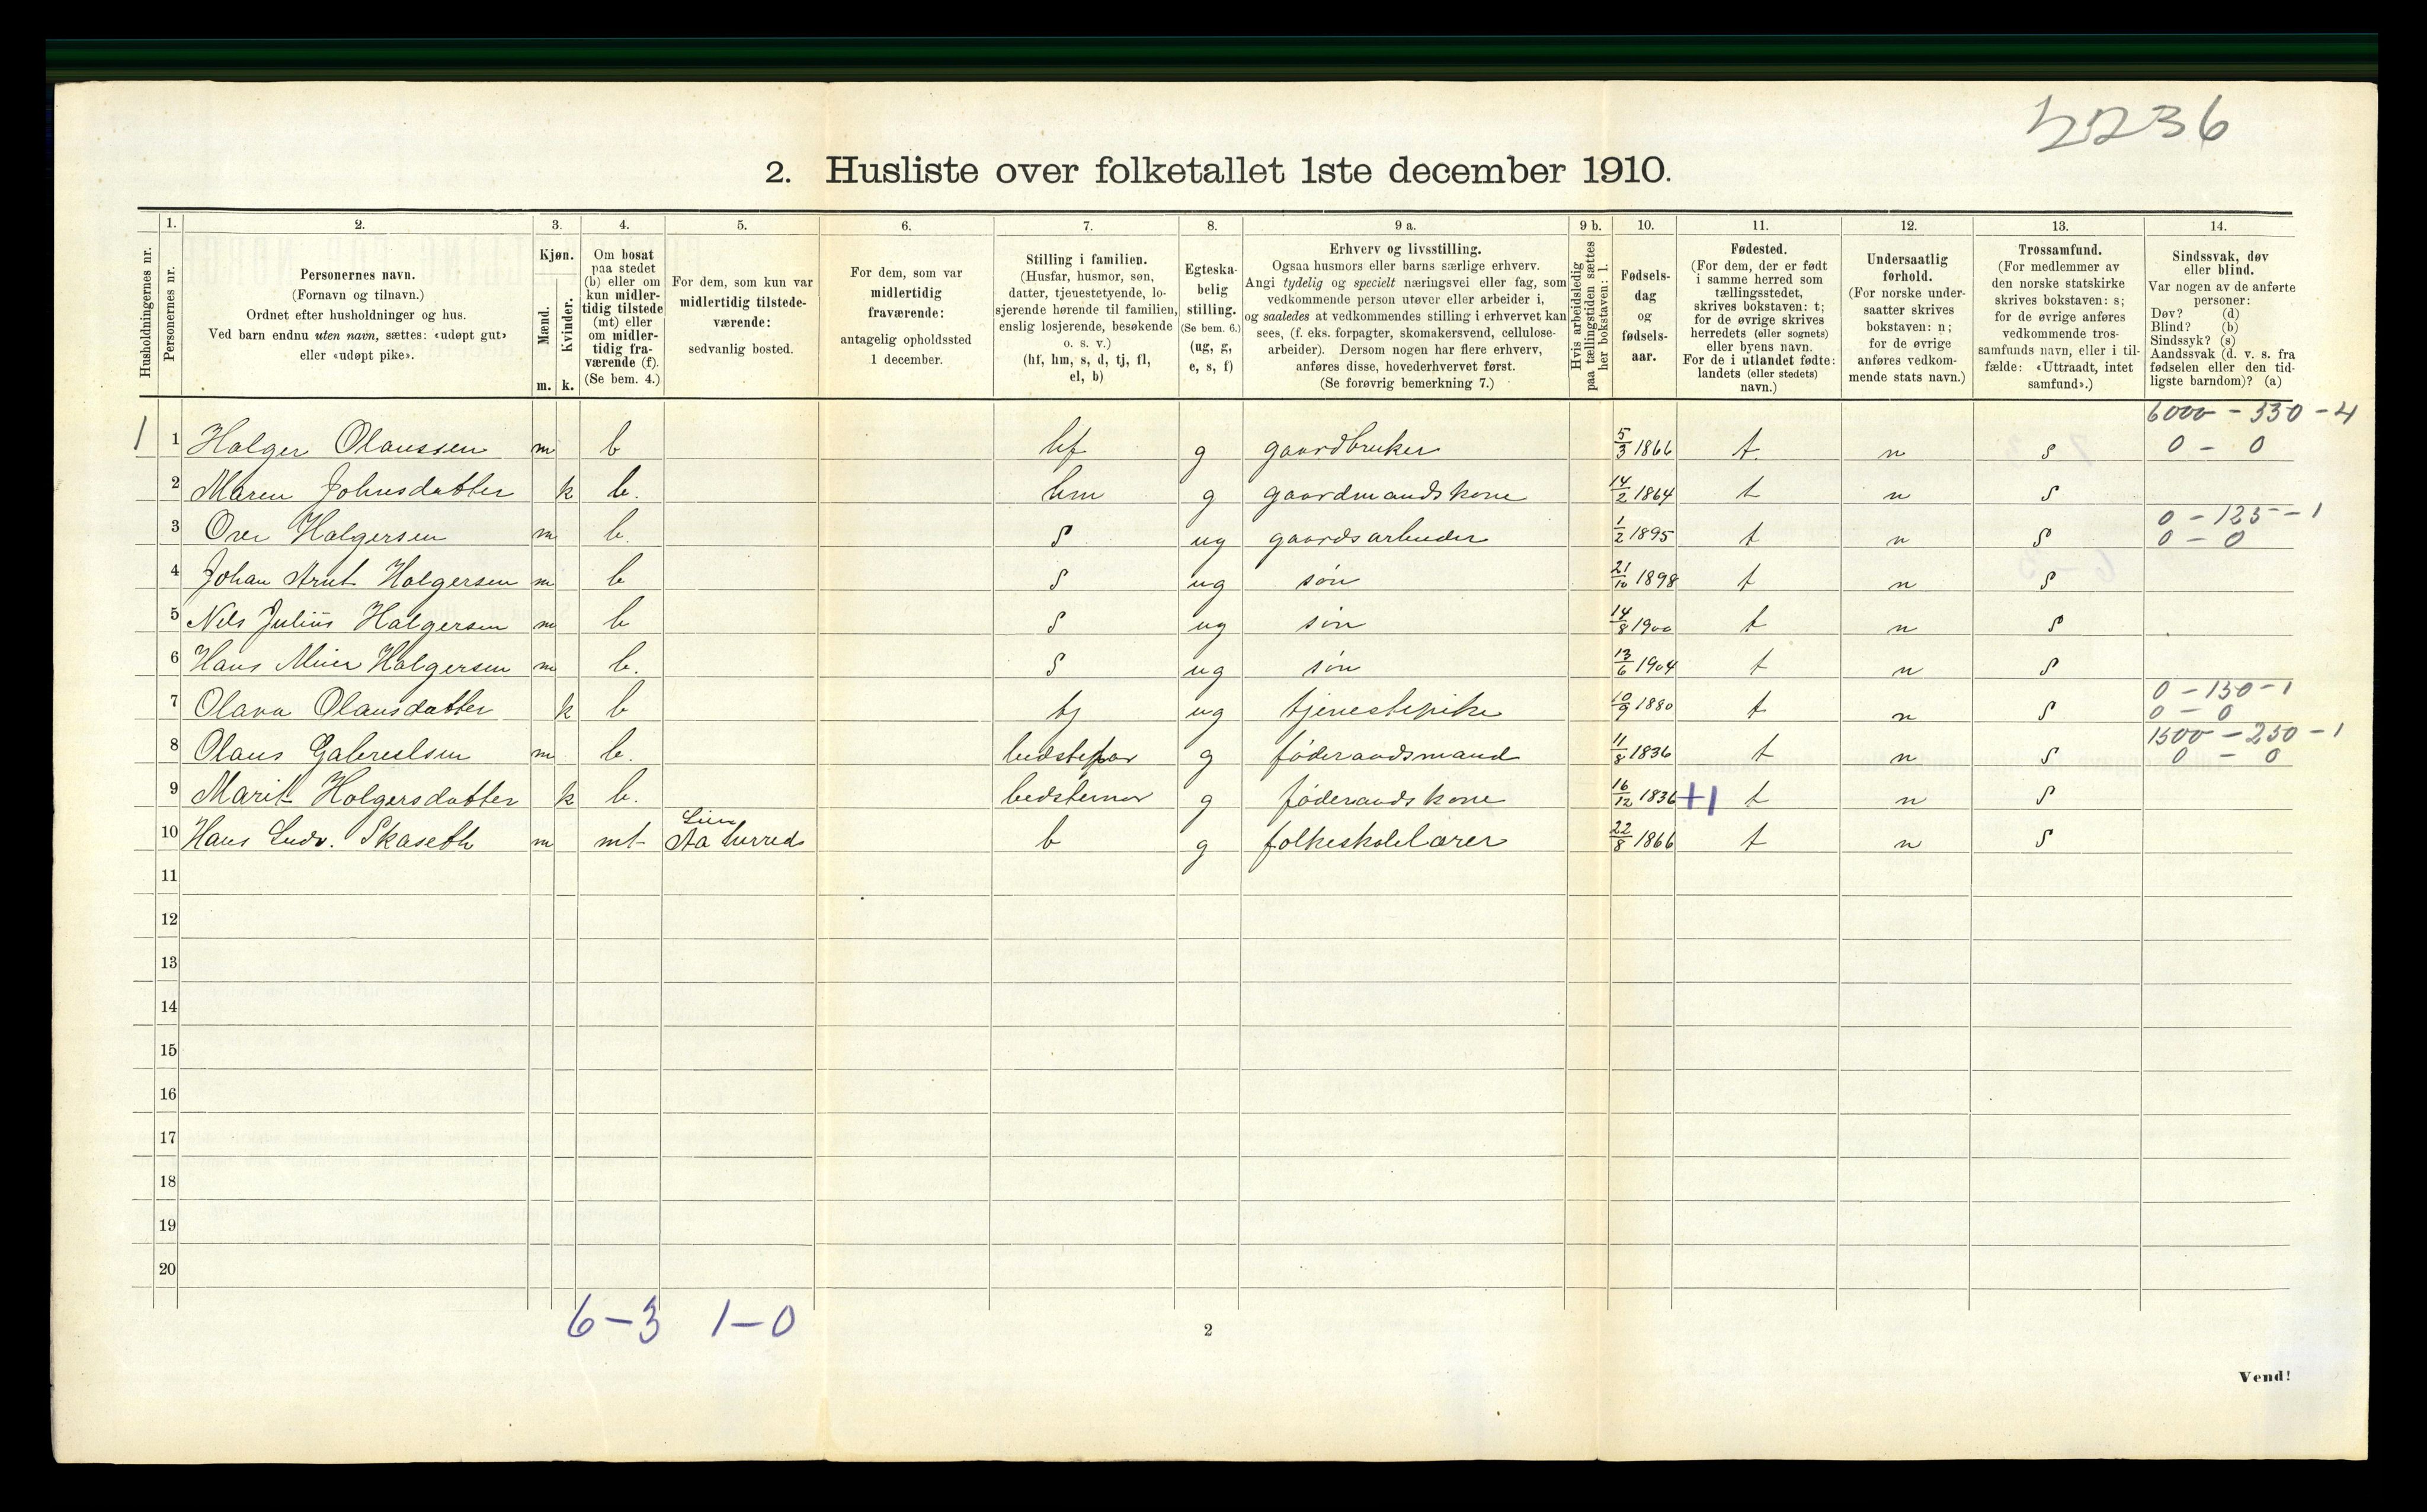 5236
2. Husliste over folketallet 1ste december 1910.
1. 2. 3. 4. 5. 6. 7. 8. 9 a. 9 b. 10. 11. 12. 13. 14.
Husholdningernes nr.
Personernes nr.
Personernes navn.
(Fornavn og tilnavn.)
Ordnet efter husholdninger og hus.
Ved barn endnu uten navn, sættes: «udøpt gut»
eller «udøpt pike».
Kjøn.
Mænd.
Kvinder.
m. k.
Om bosat
paa stedet
(b) eller om
kun midler-
tidig tilstede
(mt) eller
om midler-
tidig fra-
værende (f).
(Se bem. 4.)
For dem, som kun var
midlertidig tilstede-
værende:
sedvanlig bosted.
For dem, som var
midlertidig
fraværende:
antagelig opholdssted
1 december.
Stilling i familien.
(Husfar, husmor, søn,
datter, tjenestetyende, lo-
sjerende hørende til familien,
enslig losjerende, besøkende
o. s. v.)
(hf, hm, s, d, tj, fl,
el, b)
Egteska-
belig
stilling.
(Se bem. 6.)
(ug, g,
e, s, f)
Erhverv og livsstilling.
Ogsaa husmors eller barns særlige erhverv.
Angi tydelig og specielt næringsvei eller fag, som
vedkommende person utøver eller arbeider i,
og saaledes at vedkommendes stilling i erhvervet kan
sees, (f. eks. forpagter, skomakersvend, cellulose-
arbeider). Dersom nogen har flere erhverv,
anføres disse, hovederhvervet først.
(Se forøvrig bemerkning 7.)
Hvis arbeidsledig
paa tællingstiden sættes
her bokstaven: l.
Fødsels-
dag
og
fødsels-
aar.
Fødested.
(For dem, der er født
i samme herred som
tællingsstedet,
skrives bokstaven: t;
for de øvrige skrives
herredets (eller sognets)
eller byens navn.
For de i utlandet fødte:
landets (eller stedets)
navn.)
Undersaatlig
forhold.
(For norske under-
saatter skrives
bokstaven: n;
for de øvrige
anføres vedkom-
mende stats navn.)
Trossamfund.
(For medlemmer av
den norske statskirke
skrives bokstaven: s;
for de øvrige anføres
vedkommende tros-
samfunds navn, eller i til-
fælde: «Uttraadt, intet
samfund».)
Sindssvak, døv
eller blind.
Var nogen av de anførte
personer:
Døv? (d)
Blind? (b)
Sindssyk? (s)
Aandssvak (d. v. s. fra
fødselen eller den tid-
ligste barndom)? (a)
6000 - 530 - 4
1 1 Holger Olaussen m b hf g gaardbruker 5/3 1866 t. n s 0 - 0
2 Maren Johnsdatter k b. hm g gaardmandskone 14/2 1864 t n s
0 - 125 - 1
3 Ove Holgersen m b. s ug gaardsarbeider 1/2 1895 t n s 0 - 0
4 Johan Arnt Holgersen m b s ug søn 21/10 1898 t n s
5 Nils Julius Holgersen m b s ug søn 14/8 1900 t n s
6 Hans Meier Holgersen m b. s ug søn 13/6 1904 t n s
0 - 130 - 1
7 Olava Olausdatter k b tj ug tjenestepike 10/9 1880 t n s 0 - 0
1500 - 250 - 1
8 Olaus Gabrielsen m b. bedstefar g føderaadsmand 11/8 1836 t n s 0 - 0
9 Marit Holgersdatter k b. bedstemor g føderaadskone 16/12 1836 +1 t n s
10 Hans Ludv. Skaseth m mt Aa herred b g folkeskolelærer 22/8 1866 t n s
11
12
13
14
15
16
17
18
19
20
6-3 1-0
2
Vend!